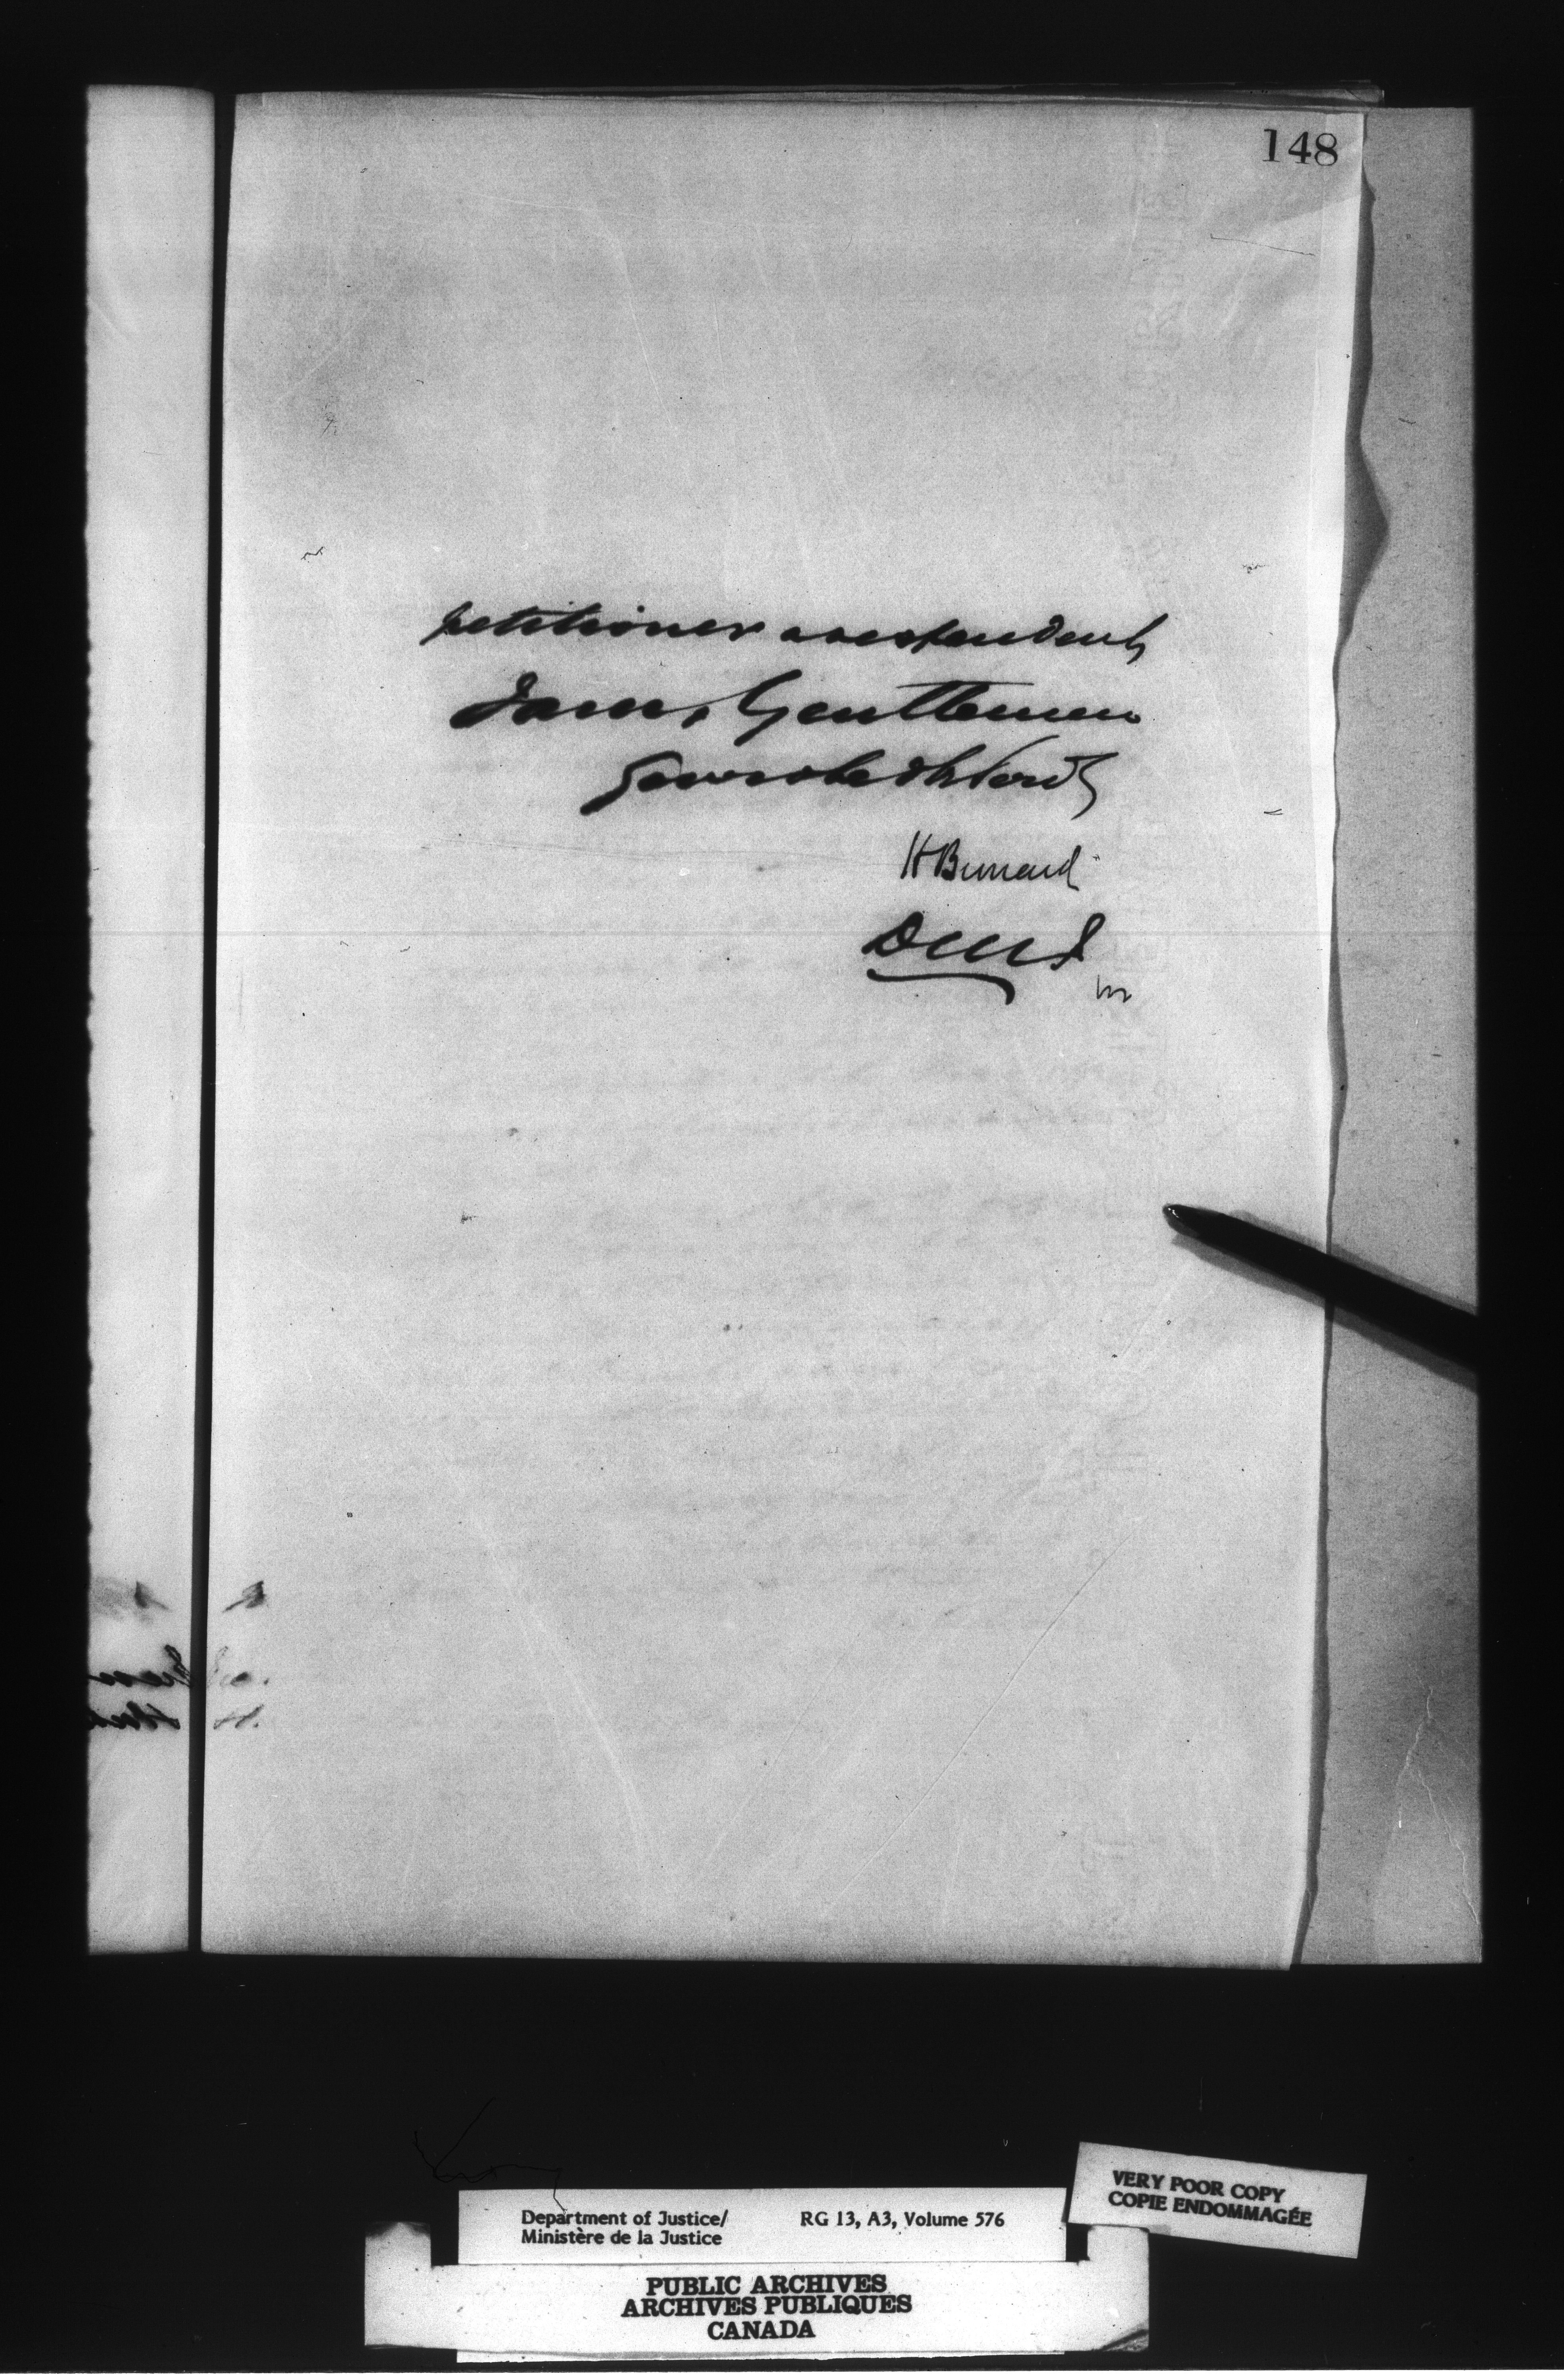 148
petitioner
I am, Gentlemen
Your obedt Servt
H Bernard
DMJ
Department of Justice/ RG 13, A3, Volume 576
Ministère de la Justice
VERY POOR COPY
COPIE ENDOMMAGÉE
PUBLIC ARCHIVES
ARCHIVES PUBLIQUES
CANADA